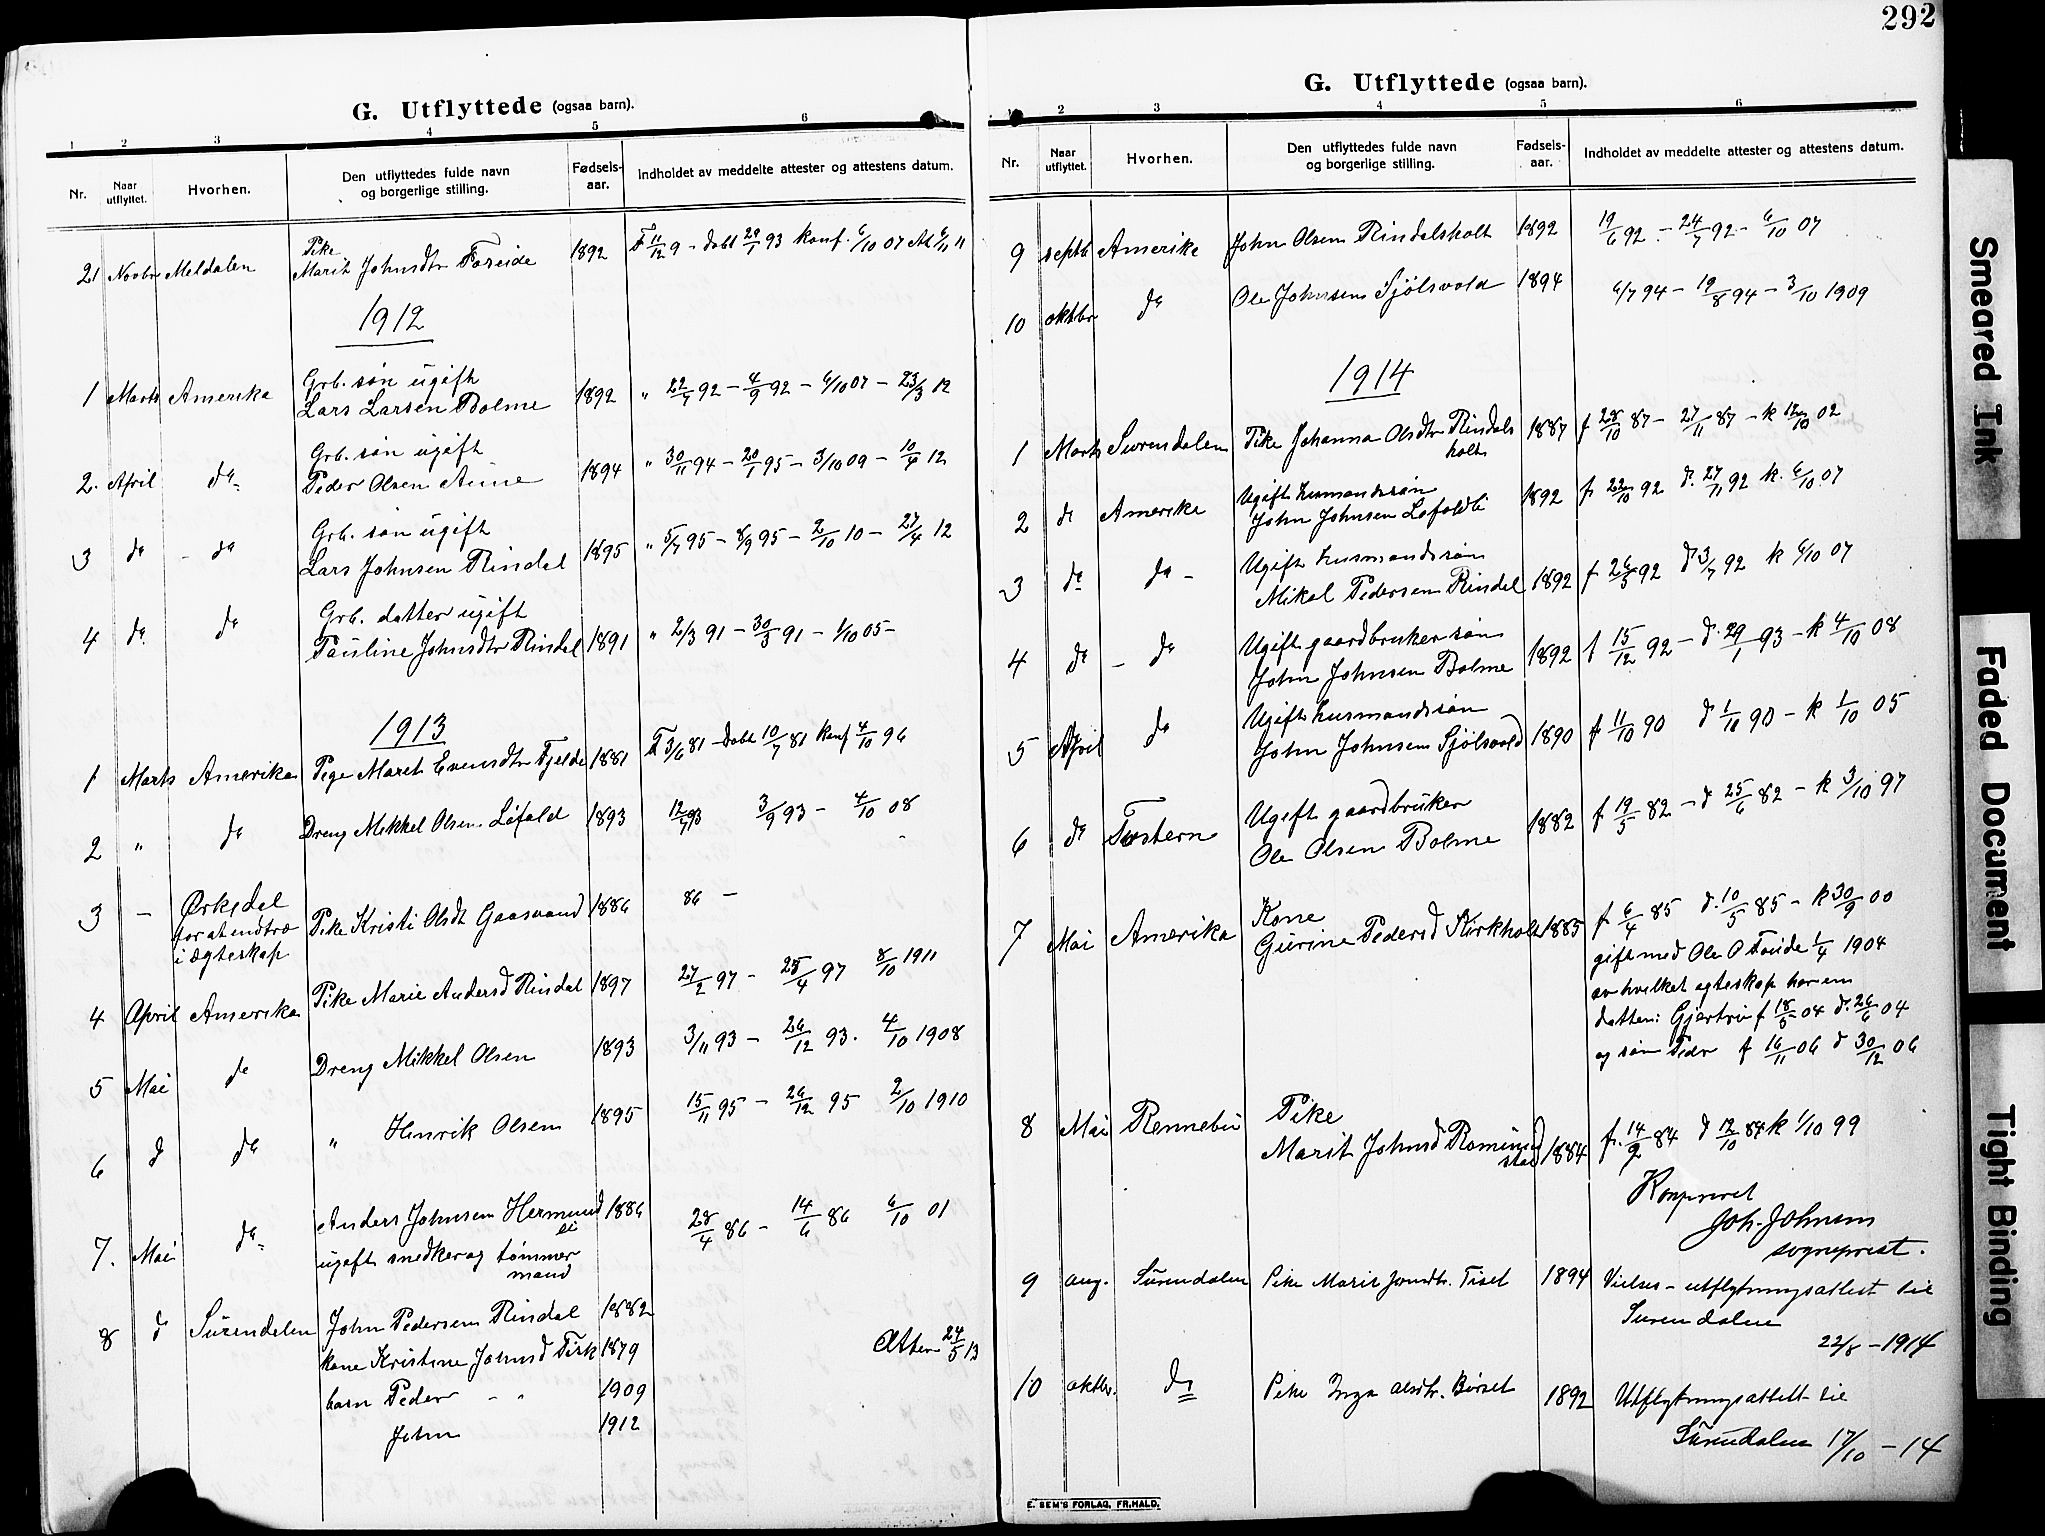 292
G. Utflyttede (ogsaa barn).
1 2 3 4 5 6
Nr. Naar utflyttet. Hvorhen. Den utflyttedes fulde navn og borgerlige stilling. Fødsels-aar. Indholdet av meddelte attester og attestens datum.
Pike
21 Novbr Meldalen Marit Johnsdtr Foseide 1892 F 11/12 9 - døbt 29/1 93 konf. 6/10 07 At 6/11 11
1912
Grb. søn ugift
1 Marts Amerika Lars Larsen Bolme 1892 " 22/7 92 - 4/9 92 - 6/10 07 - 23/3 12
Grb. søn ugift
2. April do Peder Olsen Aune 1894 " 30/11 94 - 20/1 95 - 3/10 09 - 10/4 12
Grb. søn ugift
3 do - do Lars Johnsen Rindal 1895 " 5/7 95 - 8/9 95 - 2/10 10 - 27/4 12
Grb. datter ugift
4 do do Pauline Johnsdtr Rindal 1891 " 2/3 91 - 30/3 91 - 1/10 05 -
1913
1 Marts Amerika Pige Maret Evensdtr Fjelde 1881 F 3/6 81 - døbt 10/7 81 konf 4/10 96
2 " do Dreng Mikkel Olsen Løfald 1893 12/7 93 3/9 93 - 4/10 08
3 - Ørkedal Pike Kristi Olsdt Gaasvand 1886 86 -
for at indtræ
i ægteskap
4 April Amerika Pike Marie Andersd Rindal 1897 27/2 97 - 25/4 97 8/10 1911
5 Mai do Dreng Mikkel Olsen 1893 3/11 93 - 26/12 93. 4/10 1908
6 d do " Henrik Olsen 1895 15/11 95 - 26/12 95 2/10 1910
7. Mai do Anders Johnsen Hermund 1886 28/4 86 - 14/6 86 6/10 01
ugift snedker og tømmer
mand
8 d Surendalen John Pedersen Rindal 1882
kone Kristine Johnsd Tisk 1879 Atter 24/5 13
barn Peder - " 1909
John 1912
G. Utflyttede (ogsaa barn).
2 3 4 5 6
Nr. Naar utflyttet. Hvorhen. Den utflyttedes fulde navn og borgerlige stilling. Fødsels-aar. Indholdet av meddelte attester og attestens datum.
9 septb Amerika John Olsen Rindalsholt 1892 19/6 92 - 24/7 92 - 6/10 07
10 oktbr do Ole Johnsen Sjølsvold 1894 6/7 94 - 19/8 94 - 3/10 1909
1914
1 Marts Surendalen Pike Johanna Olsdtr Rindals 1887 f 28/10 87 - 27/11 87 - k 12/10 02
holt
Ugift husmandssøn
2 do Amerika John Johnsen Løfaldli 1892 f. 22/10 92 d. 27/11 92 k. 6/10 07
Ugift husmandssøn
3 do do - Mikal Pedersen Rindal 1892 f 26/5 92 d 3/7 92 k 6/10 07
Ugift gaardbruker søn
4 do - do John Johnsen Bolme 1892 f 15/12 92 - d. 29/1 93 - k 4/10 08
Ugift husmandssøn
5 April do John Johnsen Sjølsvold 1890 f 11/10 90 d 1/10 90 - k 1/10 05
Ugift gaardbruker
6 do Tustern Ole Olsen Bolme 1882 f 19/5 82 - d 25/6 82 - k 3/10 97
Kone
7 Mai Amerika Gurine Pedersd Kirkholt 1885 f 6/4 85 d. 10/5 85 - k 30/9 00
gift med Ole O Foside 1/4 1904
av hvilket egteskap har en
datter: Gjertru f 18/5 04 d. 26/6 04
og søn Peder f 16/11 06 d 30/12 06
Pike
8 Mai Rennebu Marit Johnsd Romund 1884 f. 14/9 84 d 12/10 84 k 1/10 99
stad
Konfereret
Joh. Johnsen
sogneprest.
9 aug. Surendalen Pike Marit Jonsdtr. Tiset 1894 Vielses - utflytningsattest til
Surendalen
22/8 - 1914
10 oktbr. do Pike Inga Olsdtr. Børset 1892 Utflytningsattest til
Surendalen 17/10 - 14
E. SEM'S FORLAG, FR.HALD.
Smeared Ink
Faded Document
Tight Binding